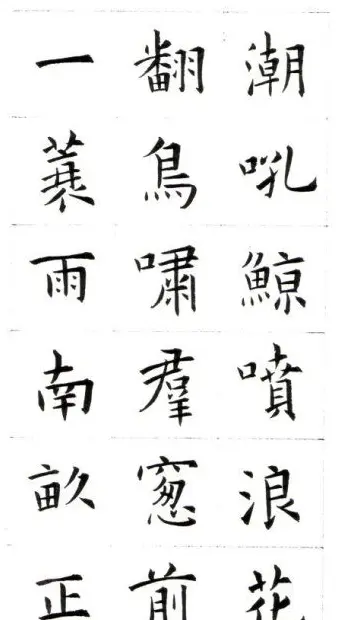 潮吼鯨噴浪花
翻鳥嘯羣窻前
一蓑雨南畝正